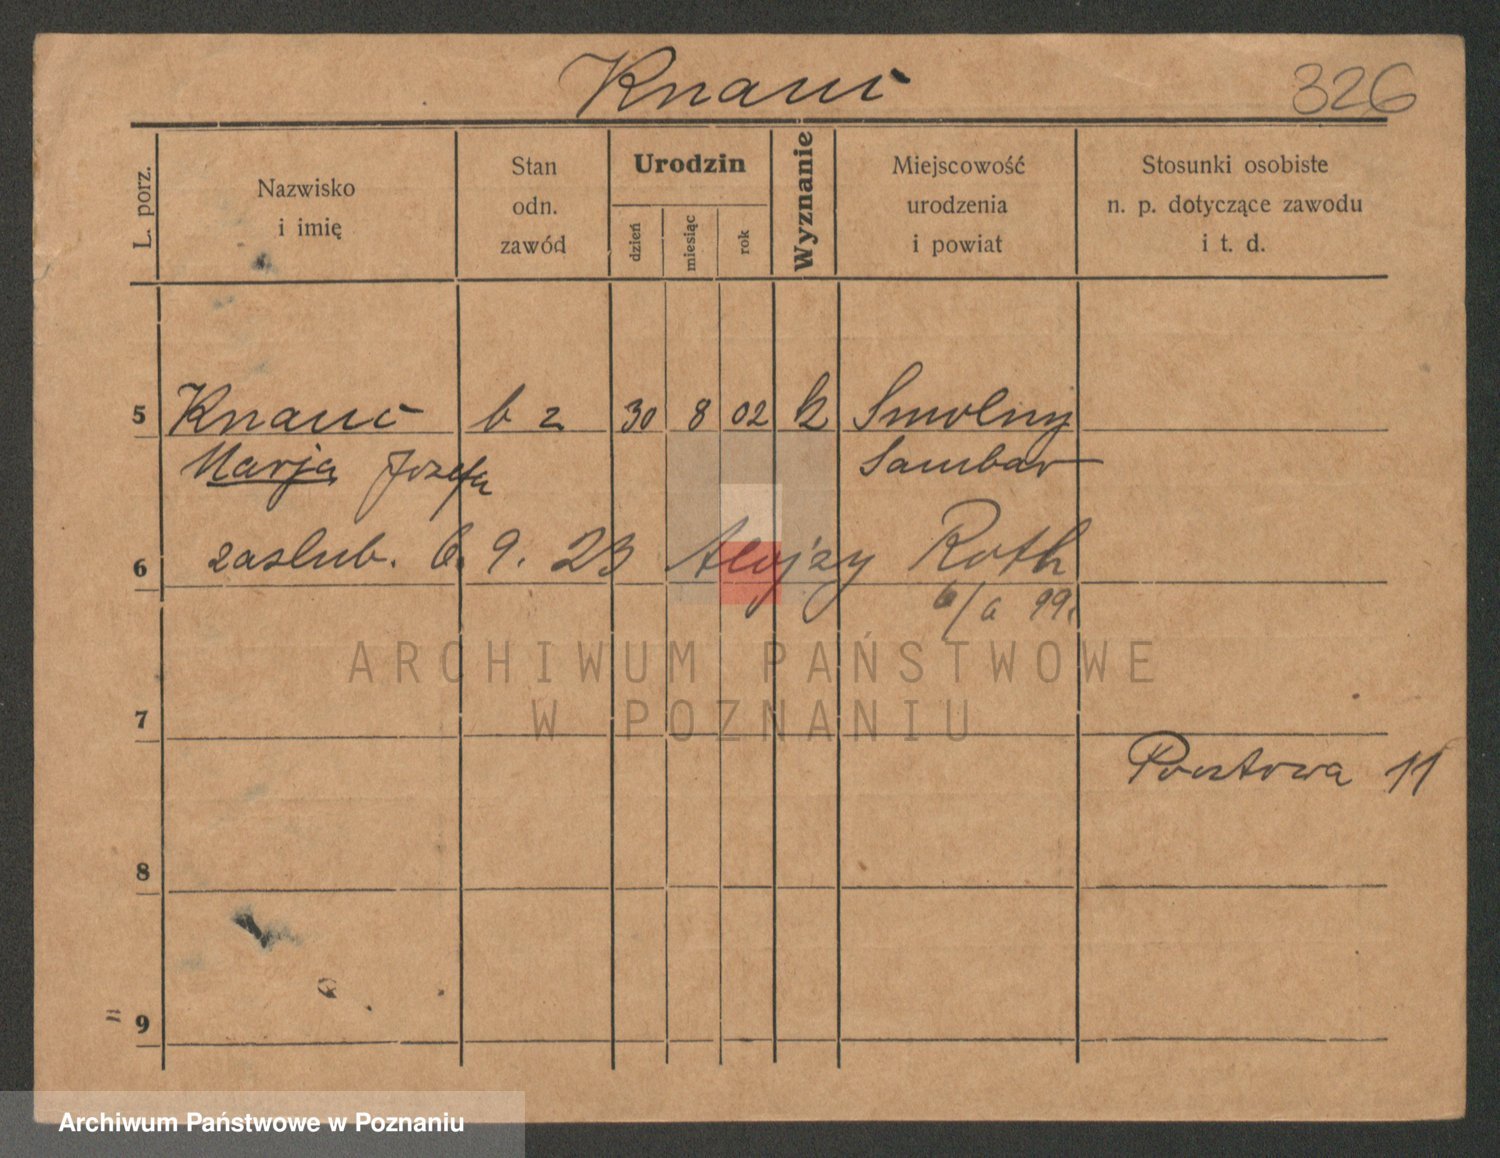 Knauć 326
L. porz.
Nazwisko
i imię
Stan
odn.
zawód
Urodzin
dzień
miesiąc
rok
Wyznanie
Miejscowość
urodzenia
i powiat
Stosunki osobiste
n. p. dotyczące zawodu
i t. d.
5 Knauć b z 30 8 02 k Smolny
Marja Józefa Sambor
6 zaslub. 6. 9. 23 Alojzy Roth
6/6 99.
ARCHIWUM PAŃSTWOWE
W POZNANIU
7
Pocztowa 11
8
9
Archiwum Państwowe w Poznaniu